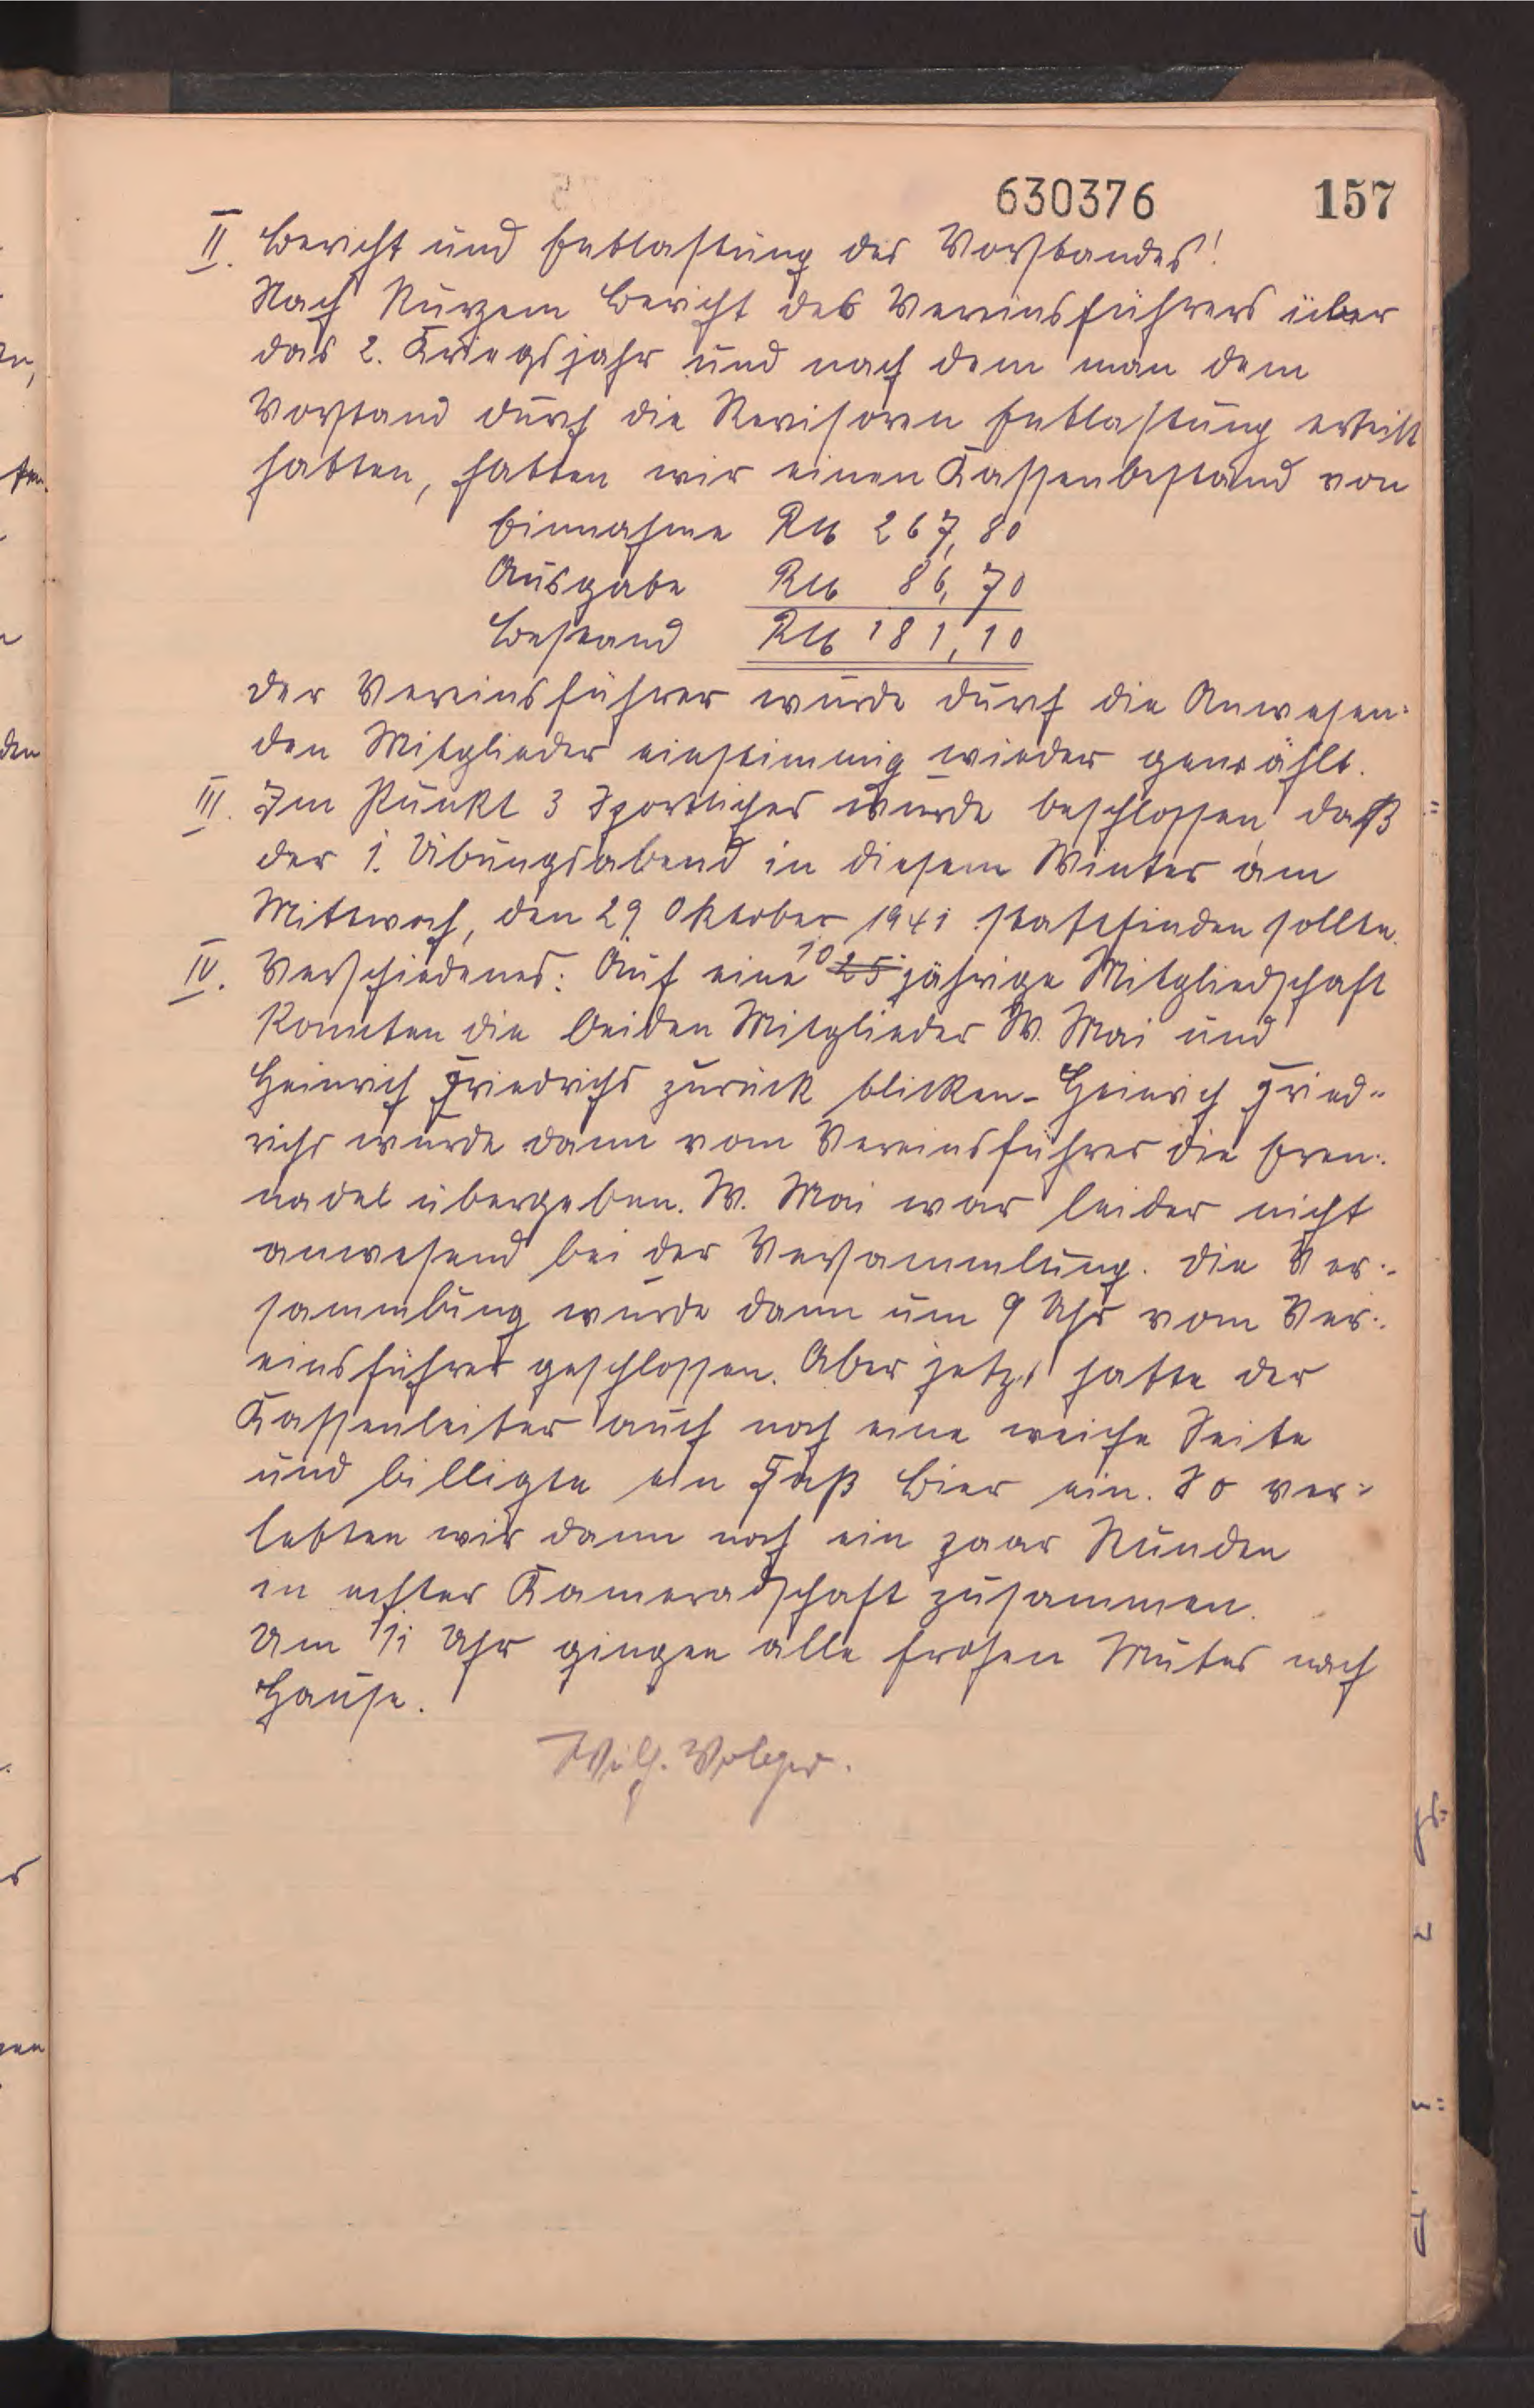 630376 157
II. Bericht und Entlastung des Vorstandes!
Nach kurzem Bericht des Vereinsführers über
das 2. Kriegsjahr und nach dem man dem
Vorstand durch die Revisoren Entlastung erteilt
hatten, hatten wir einen Kassenbestand von
Einnahme RM 267,80
Ausgabe RM 86,70
Bestand RM 181,10
der Vereinsführer wurde durch die Anwesen-
den Mitglieder einstimmig wieder gewählt.
III. Im Punkt 3 Sportliches wurde beschlossen daß
der 1. Übungsabend in diesem Winter am
Mittwoch, den 29. Oktober 1941 stattfinden sollte.
IV. Verschiedenes: Auf eine 10 25 jährige Mitgliedschaft
konnten die beiden Mitglieder W. Mai und
Heinrich Friedrichs zurück blicken. Heinrich Fried-
richs wurde dann vom Vereinsführer die Eren-
nadel übergeben. W. Mai war leider nicht
anwesend bei der Versammlung. Die Ver-
sammlung wurde dann um 9 Uhr vom Ver-
einsführer geschlossen. Aber jetzt hatte der
Kassenleiter auch noch eine weiche Seite
und billigte ein Faß Bier ein. So ver-
lebten wir dann noch ein paar Stunden
in echter Kameradschaft zusammen.
Um 11 Uhr gingen alle frohen Mutes nach
Hause.
Wilh. Volger.